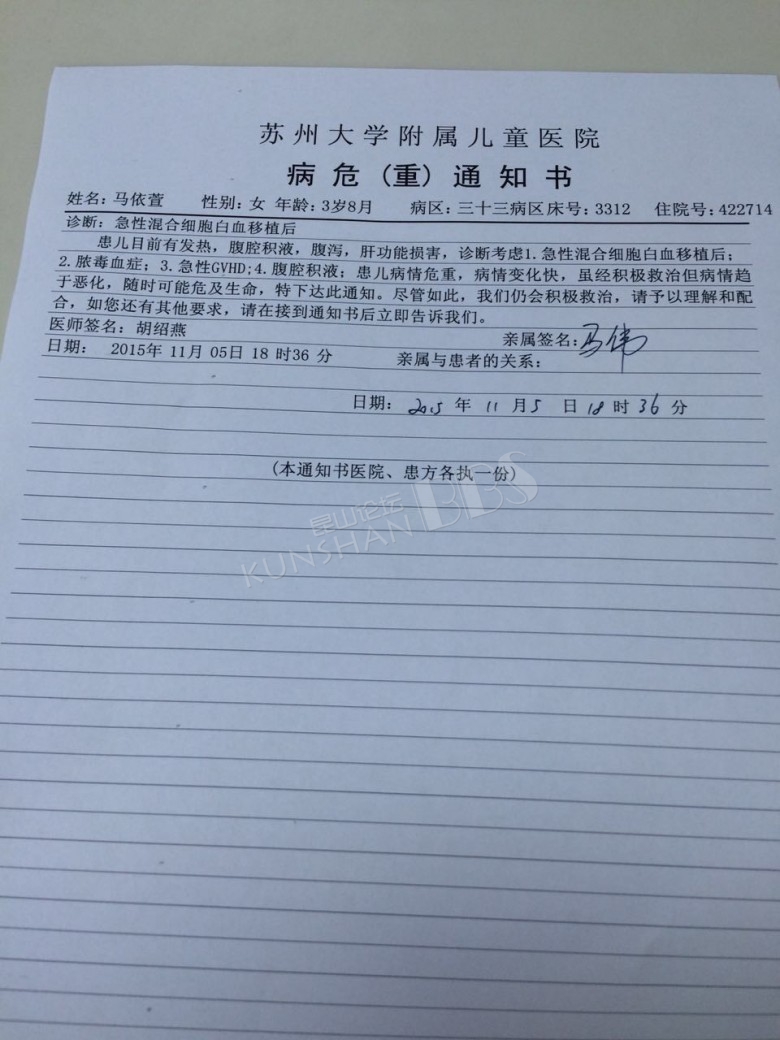 苏州大学附属儿童医院
病危(重)通知书
姓名：马依萱 性别：女 年龄：3岁8月 病区：三十三病区 床号：3312 住院号：422714
诊断：急性混合细胞白血移植后
患儿目前有发热，腹腔积液，腹泻，肝功能损害，诊断考虑1.急性混合细胞白血移植后；
2.脓毒血症；3.急性GVHD;4.腹腔积液；患儿病情危重，病情变化快，虽经积极救治但病情趋
于恶化，随时可能危及生命，特下达此通知。尽管如此，我们仍会积极救治，请予以理解和配
合，如您还有其他要求，请在接到通知书后立即告诉我们。
医师签名：胡绍燕 亲属签名：马伟
日期： 2015年 11月 05日 18 时36 分 亲属与患者的关系：
日期： 2015 年 11 月 5 日 18 时 36 分
(本通知书医院、患方各执一份)
昆山论坛
KUNSHAN BBS